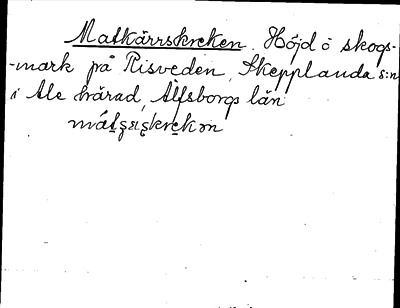 Matkärrskreken. Höjd å skogs-
-mark på Risveden, Skepplanda s:n
i Ale härad, Älfsborgs län